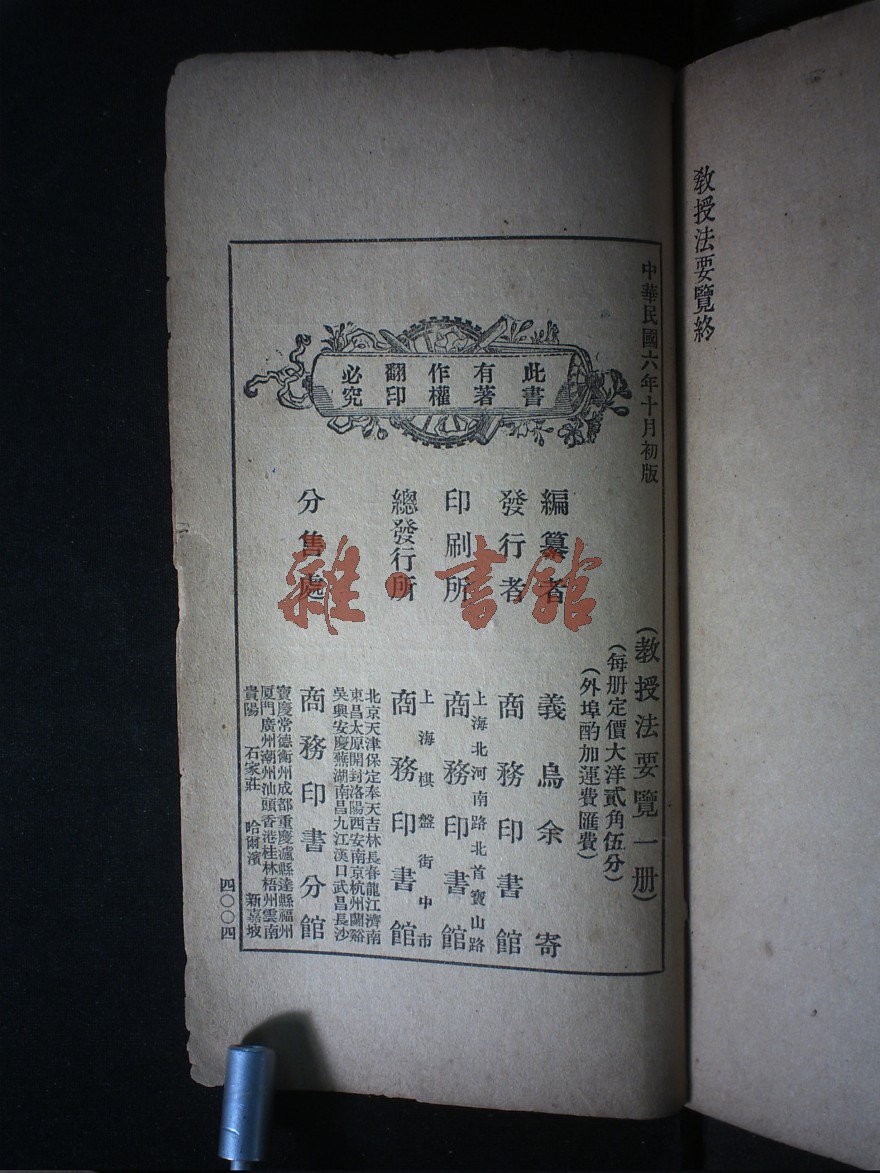 教授法要覽終
中華民國六年十月初版
(教授法要覽一册)
(每册定價大洋貳角伍分)
(外埠酌加運費匯費)
此書
有著
作權
翻印
必究
編纂者 義烏余寄
發行者 商務印書館
上海北河南路北首寶山路
印刷所 商務印書館
上海棋盤街中市
總發行所 商務印書館
北京天津保定奉天吉林長春龍江濟南
東昌太原開封洛陽西安南京杭州蘭谿
吳興安慶蕪湖南昌九江漢口武昌長沙
分售處 商務印書分館
寶慶常德衡州成都重慶瀘縣達縣福州
厦門廣州潮州汕頭香港桂林梧州雲南
貴陽 石家莊 哈爾濱 新嘉坡
四〇〇四
雜·書館